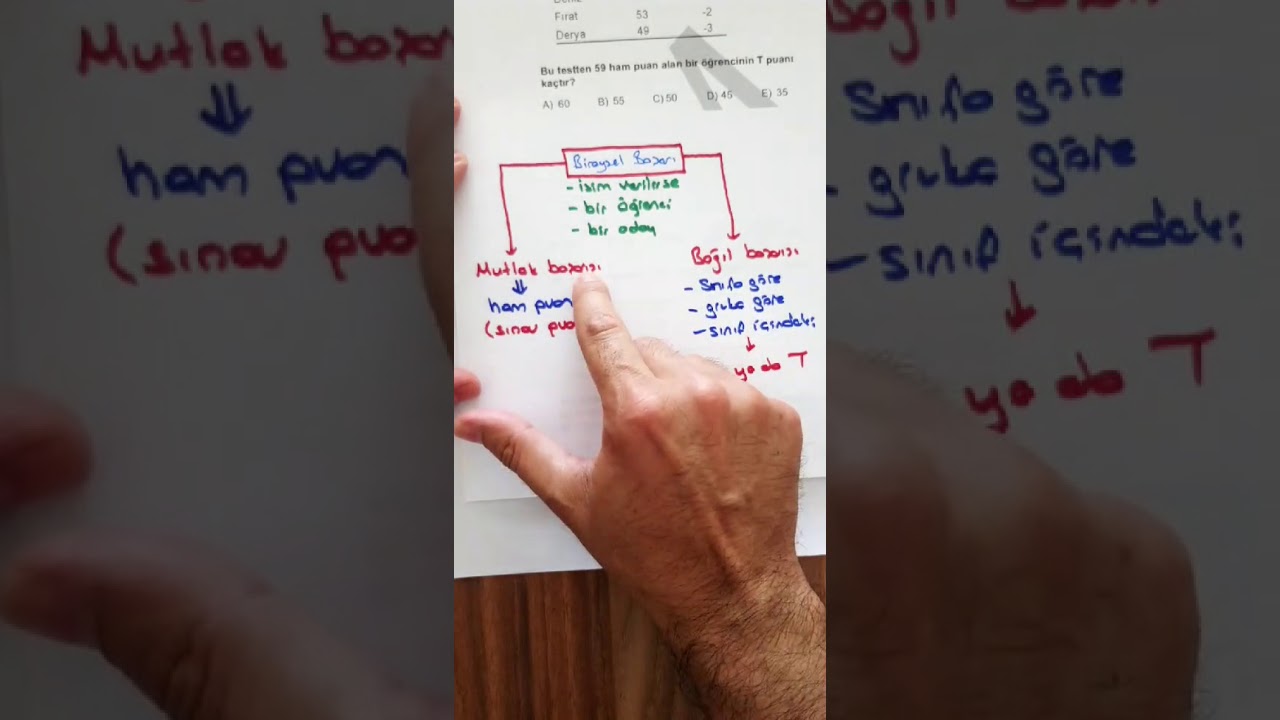 Fırat 53 -2
Derya 49 -3
Bu testten 59 ham puan alan bir öğrencinin T puanı
kaçtır?
A) 60 B) 55 C) 50 D) 45 E) 35
Bireysel Başarı
- isim verilirse
- bir öğrenci
- bir aday
Mutlak başarısı
ham puan
(sınav pua
Bağıl başarısı
- sınıfa göre
- gruba göre
- sınıf içindeki
ya da T